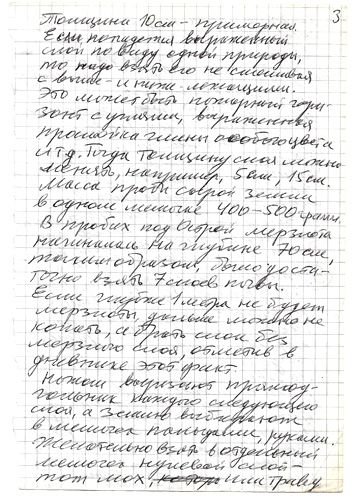 3
Толщина 10см - примерная.
Если попадется выраженный
слой по виду одной природы,
то надо взять его не смешивая
с выше- и ниже-лежащими.
Это может быть пожарный гори-
зонт с углями, выраженная
прослойка глины особого цвета
и т.д. Тогда толщину слоя можно
менять, например, 5см, 15см.
Масса пробы сырой земли
в одном мешочке 400-500 грамм.
В пробах под Игрой мерзлота
начиналась на глубине 70см,
таким образом, было доста-
точно взять 7 слоев почвы.
Если глубже 1 метра не будет
мерзлоты, дальше можно не
копать, а брать слои без
мерзлого слоя, отметив в
дневнике этот факт.
Ножом вырезают прямоу-
гольник каждого следующего
слоя, а землю выбирают
в мешочек пальцами, руками.
Желательно взять в отдельный
мешочек нулевой слой -
тот мох, или траву